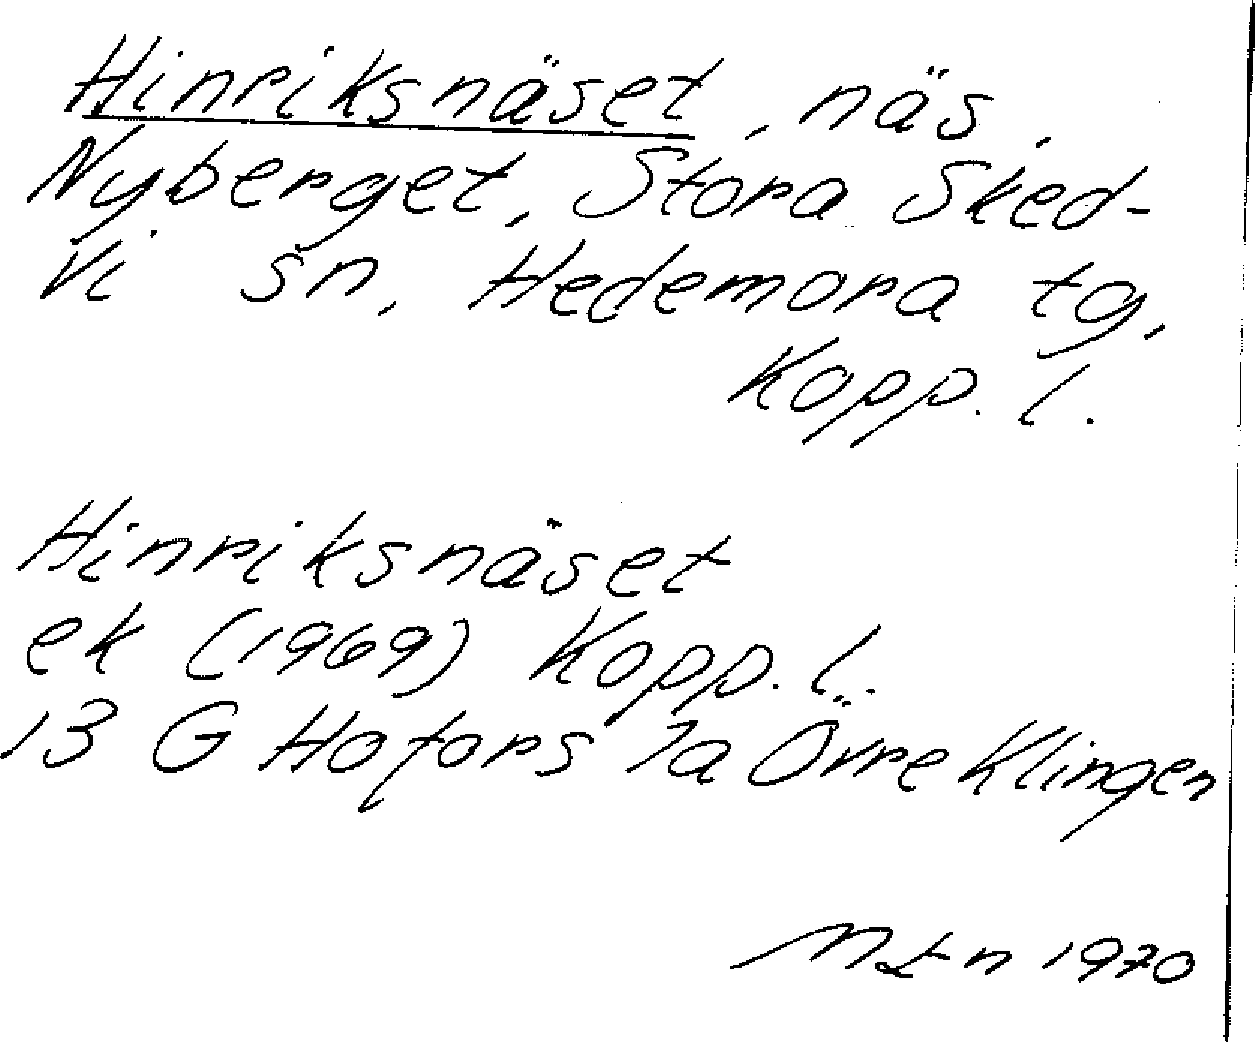 Hinriksnäset, näs,
Nyberget, Stora Sked-
vi sn, Hedemora tg,
Kopp. l.
Hinriksnäset
ek (1969) Kopp. l.
13 G Hofors 7a Övre Klingen
1970